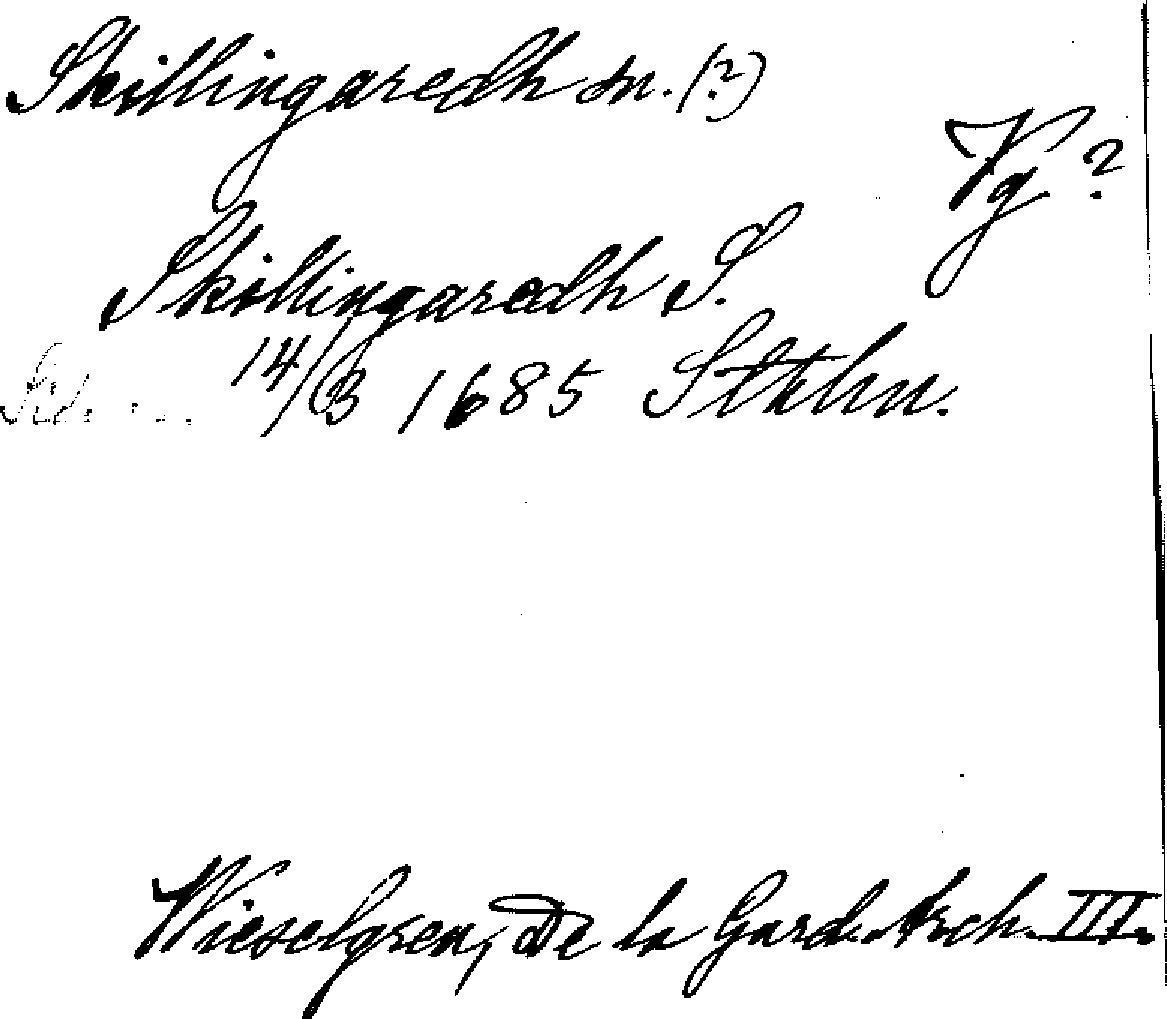 Skillingaredh sn. (?)
Vg ?
Skillingaredh S.
14/3 1685 Sthlm.
Wieselgren, De la Gard. Arch. III.